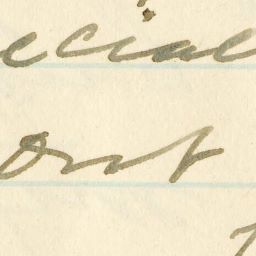 ecial
ont